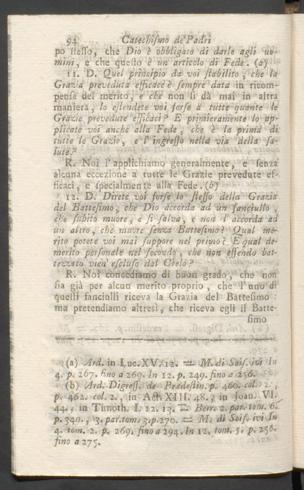 94 Catechismo de' Padri
po stesso, che Dio è obbligato di darle agli uo-
mini, e che questo è un articolo di Fede. (a)
11. D. Quel principio da voi stabilito, che la
Grazia preveduta efficace è sempre data in ricom-
pensa del merito, e che non si dà mai in altra
maniera, lo estendete voi forse a tutte quante le
Grazie prevedute efficaci? E primieramente lo ap-
plicate voi anche alla Fede, che è la prima di
tutte le Grazie, e l'ingresso nella via della sa-
lute?
R. Noi l'applichiamo generalmente, e senza
alcuna eccezione a tutte le Grazie prevedute ef-
ficaci, e specialmente alla Fede. (b)
12. D. Direte voi forse lo stesso della Grazia
del Battesimo, che Dio accorda ad un fanciullo,
che subito muore, e si salva, e non l'accorda ad
un altro, che muore senza Battesimo? Qual me-
rito potete voi mai suppore nel primo? E qual de-
merito personale nel secondo, che non essendo bat-
tezzato vien' escluso dal Cielo?
R. Noi concediamo di buon grado, che non
sia già per alcun merito proprio, che l'uno di
quelli fanciulli riceva la Grazia del Battesimo:
ma pretendiamo altresì, che riceva egli il Batte-
simo
(a) Ard. in Luc. XV. 12. = M. di Sois. ivi In
4. p. 267. fino a 269. In 12. p. 249. fino a 256.
(b) Ard. Digress. de Prædestin. p. 460. col. 2.,
p. 462. col. 2., in Act. XIII. 48., in Joan. VI.
44., in Timoth. I. 12. 13. = Berr. 2. par. tom. 6.
p. 340., 3. par. tom. 3. p. 270. = M. di Sois. ivi In
4. tom. 2. p. 269. fino a 294. In 12. tom. 5. p. 256.
fino a 275.